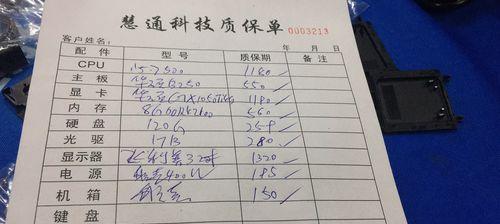 慧通科技质保单 0003213
客户姓名: 年 月 日
配件 型号 质保期 备注
CPU i5 7500 1180
主板 华硕B250 550
显卡 华硕GTX1050Ti4G 1180
内存 8G DDR4 2400 560
硬盘 120G 259
光驱 1TB 280
显示器 飞利浦32寸 1320
电源 400W 185
机箱 150
键盘